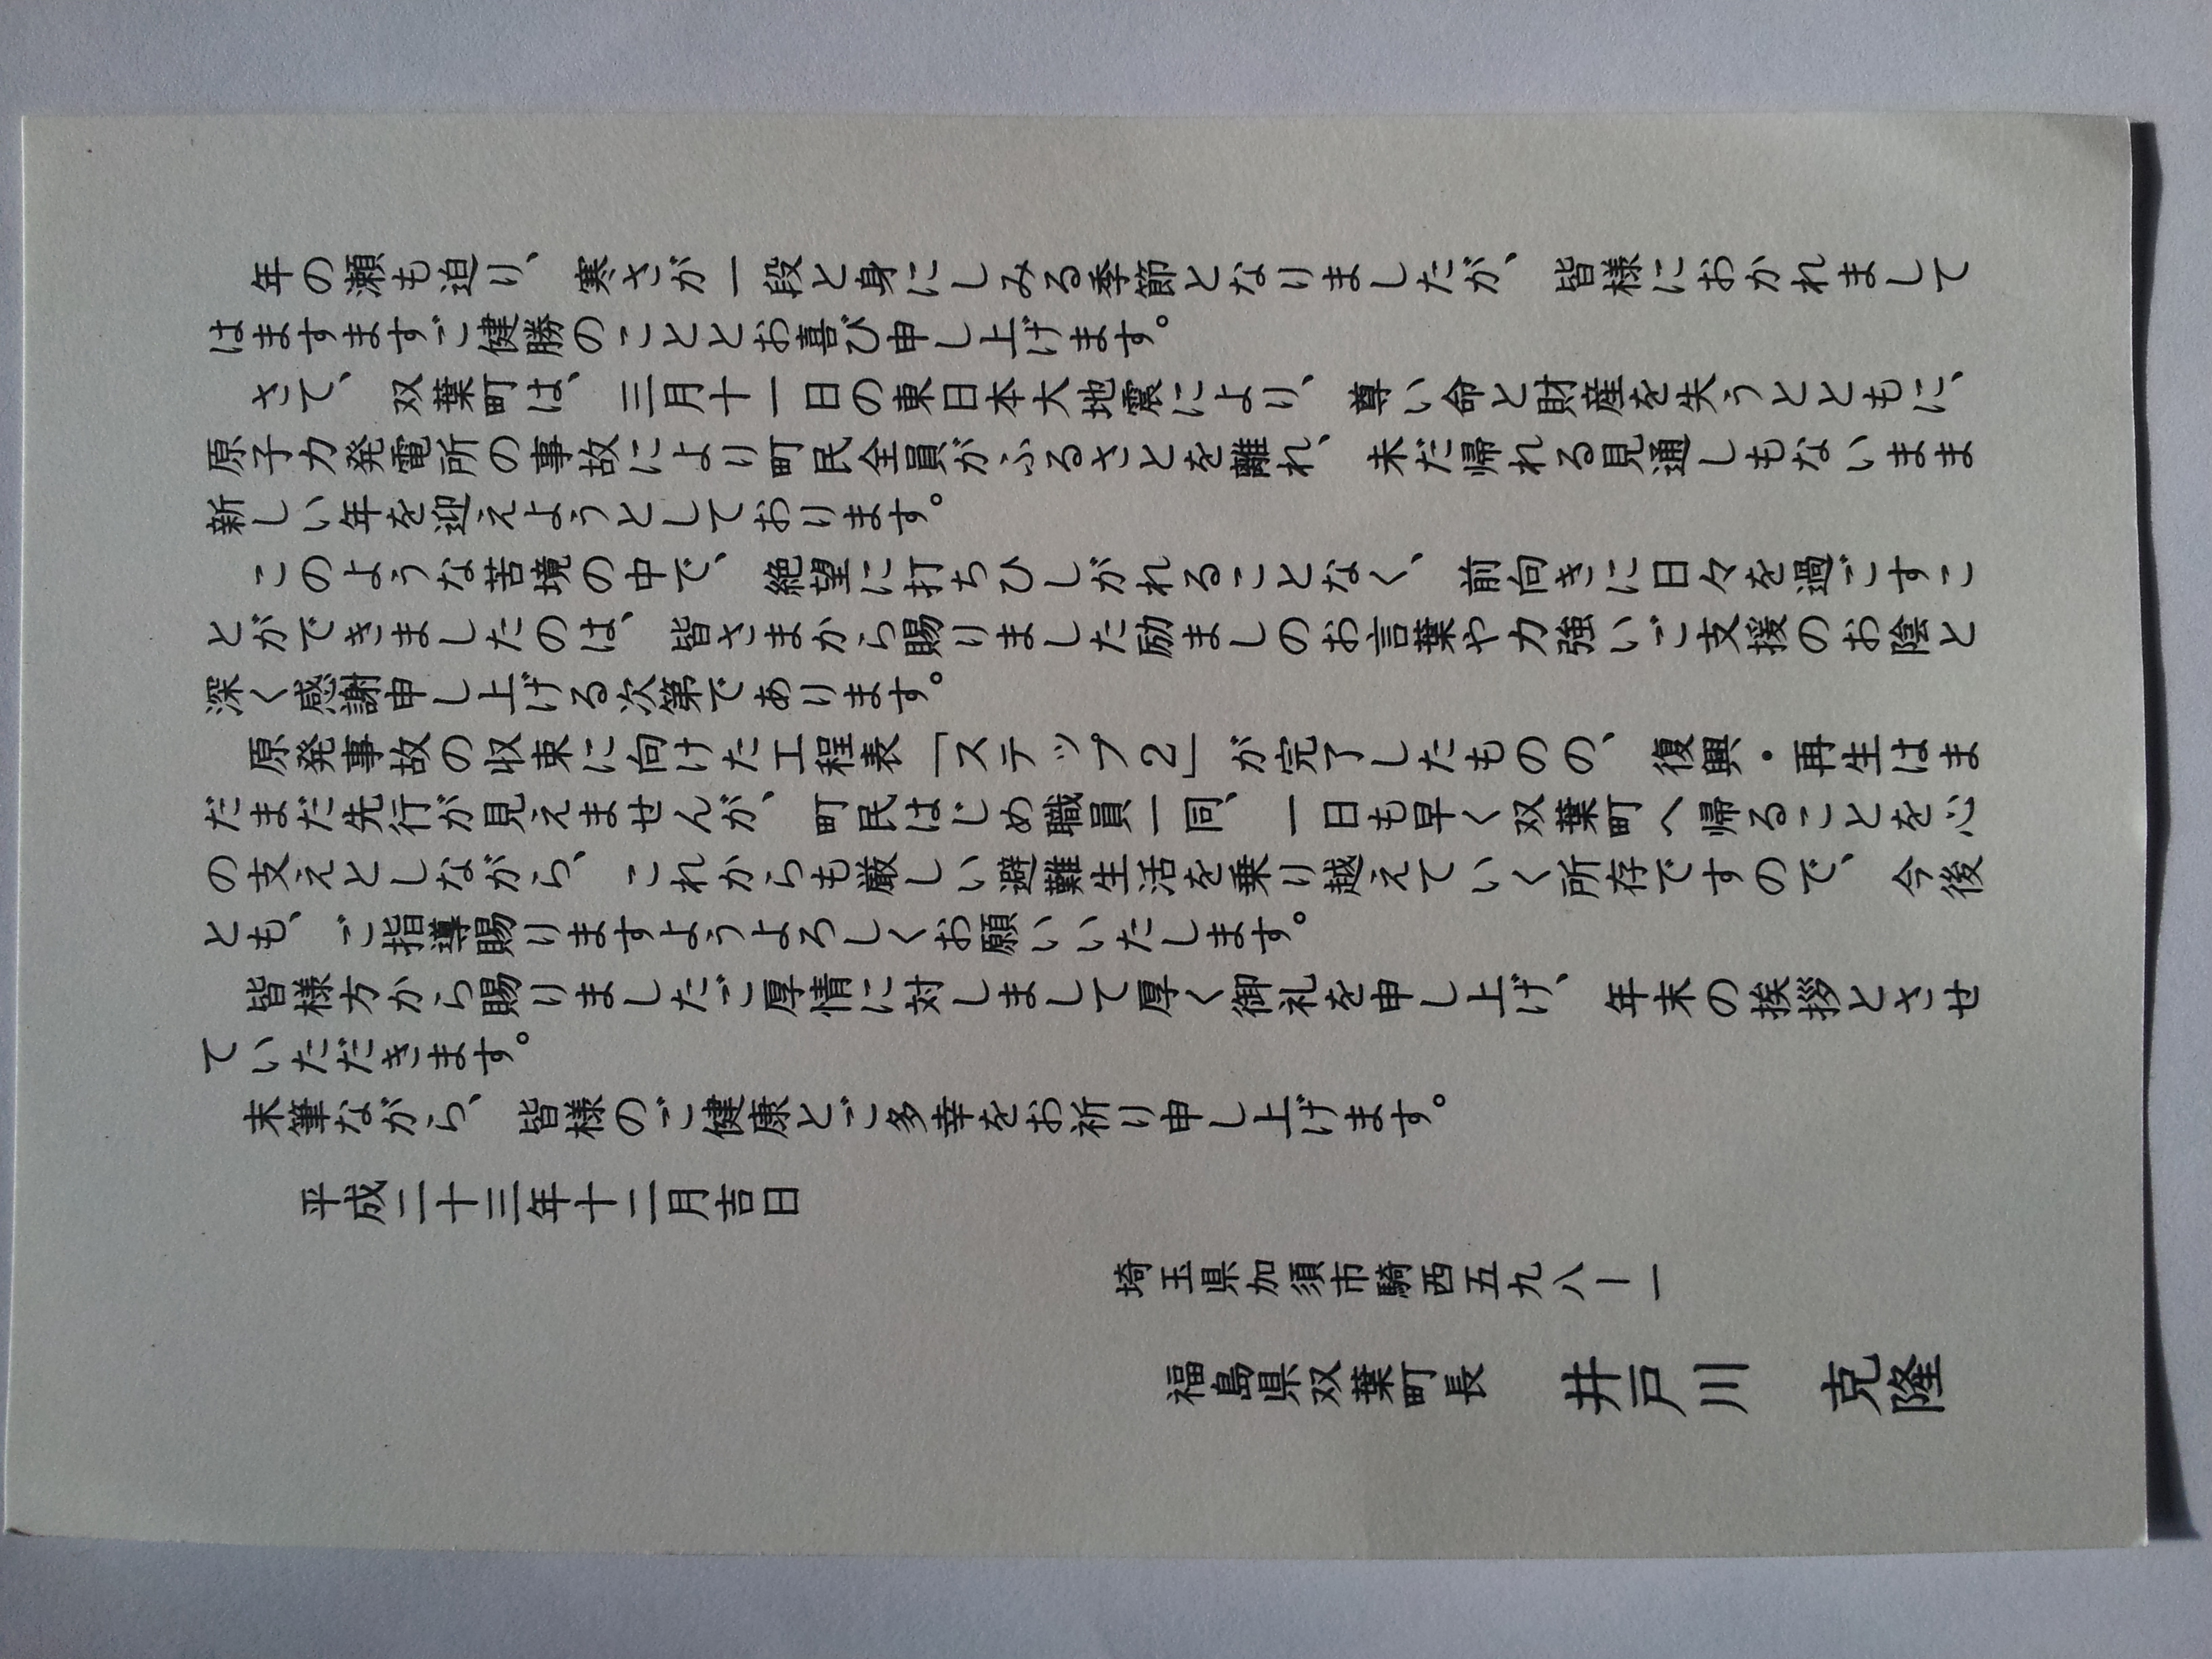 年の瀬も迫り、寒さが一段と身にしみる季節となりましたが、皆様におかれまして
はますますご健勝のこととお喜び申し上げます。
さて、双葉町は、三月十一日の東日本大地震により、尊い命と財産を失うとともに、
原子力発電所の事故により町民全員がふるさとを離れ、未だ帰れる見通しもないまま
新しい年を迎えようとしております。
このような苦境の中で、絶望に打ちひしがれることなく、前向きに日々を過ごすこ
とができましたのは、皆さまから賜りました励ましのお言葉や力強いご支援のお陰と
深く感謝申し上げる次第であります。
原発事故の収束に向けた工程表「ステップ２」が完了したものの、復興・再生はま
だまだ先行が見えませんが、町民はじめ職員一同、一日も早く双葉町へ帰ることを心
の支えとしながら、これからも厳しい避難生活を乗り越えていく所存ですので、今後
とも、ご指導賜りますようよろしくお願いいたします。
皆様方から賜りましたご厚情に対しまして厚く御礼を申し上げ、年末の挨拶とさせ
ていただきます。
末筆ながら、皆様のご健康とご多幸をお祈り申し上げます。
平成二十三年十二月吉日
埼玉県加須市騎西五九八ー一
福島県双葉町長　井戸川　克隆